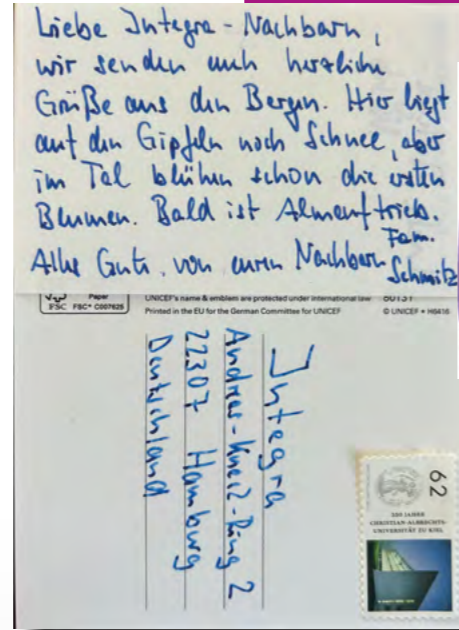 Liebe Integra-Nachbarn,
wir senden euch herzliche
Grüße aus den Bergen. Hier liegt
auf den Gipfeln noch Schnee, aber
im Tal blühen schon die ersten
Blumen. Bald ist Almauftrieb.
Alles Gute, von euren Nachbarn
Fam.
Schmitz
Paper
FSC FSC® C007625
UNICEF's name & emblem are protected under international law
Printed in the EU for the German Committee for UNICEF
60131
© UNICEF • H6416
Integra
Andreas-Knack-Ring 2
22307 Hamburg
Deutschland
62
350 JAHRE
CHRISTIAN-ALBRECHTS-
UNIVERSITÄT ZU KIEL